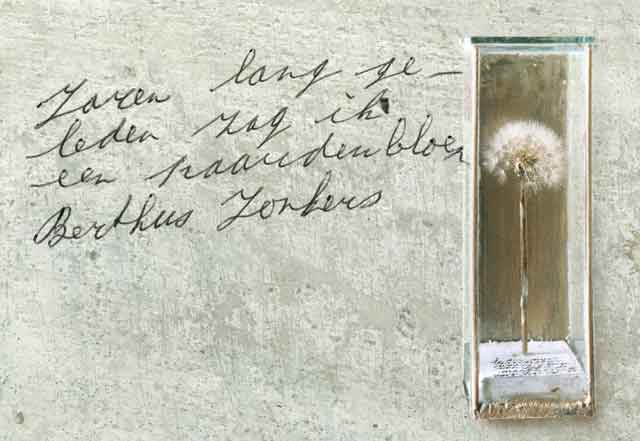 Jaren lang ge-
leden zag ik
een paardenbloem
Berthus Jonkers